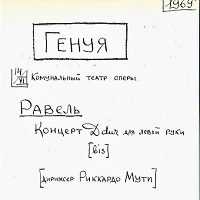 1969
ГЕНУЯ
14/VI Комунальный театр оперы.
РАВЕЛЬ
Концерт D dur для левой руки
[bis]
[дирижер Риккардо Мути]